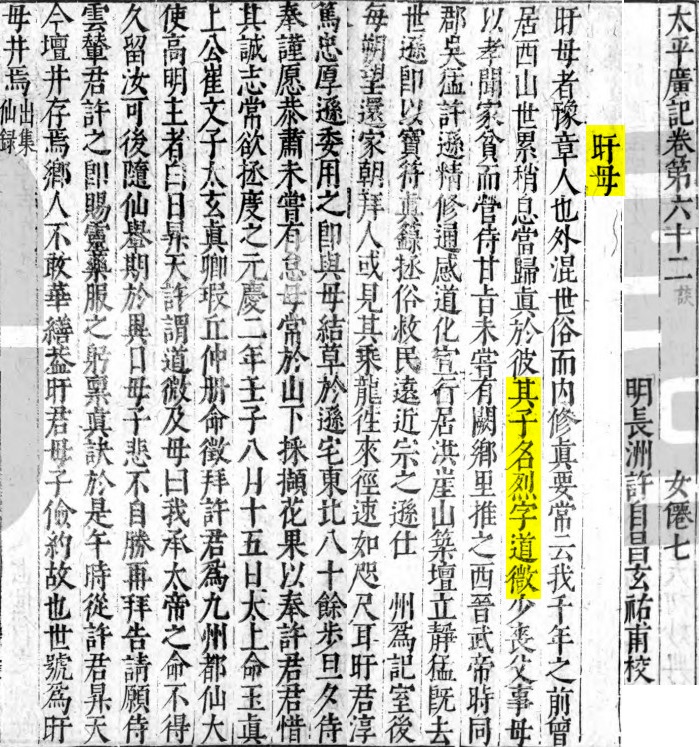 太平廣記卷第六十二 女僊七
明長洲許自昌玄祐甫校
盱母
盱母者豫章人也外混世俗而内修真要常云我千年之前曾
居西山世累稍息當歸真於彼其子名烈字道微少喪父事母
以孝聞家貧而營侍甘旨未嘗有闕鄉里推之西晉武帝時同
郡吳猛許遜精修通感道化宣行居洪崖山築壇立靜猛旣去
世遜即以寶符真籙拯俗救民遠近宗之遜仕 州爲記室後
每朔望還家朝拜人或見其乗龍徃來徑速如咫尺耳盱君淳
篤忠厚遜委用之即與母結草於遜宅東北八十餘步旦夕侍
奉謹愿恭肅未嘗有怠母常於山下採擷花果以奉許君君惜
其誠志常欲拯度之元慶二年壬子八月十五日太上命玉真
上公崔文子太玄真卿瑕丘仲册命徵拜許君爲九州都仙大
使高明主者白日昇天許謂道微及母曰我承太帝之命不得
久留汝可後隨仙舉期於異日母子悲不自勝再拜告請願侍
雲輦君許之即賜靈藥服之躬禀真訣於是午時從許君昇天
今壇井存焉鄉人不敢華繕蓋盱君母子儉約故也世號爲盱
母井焉 出集仙録